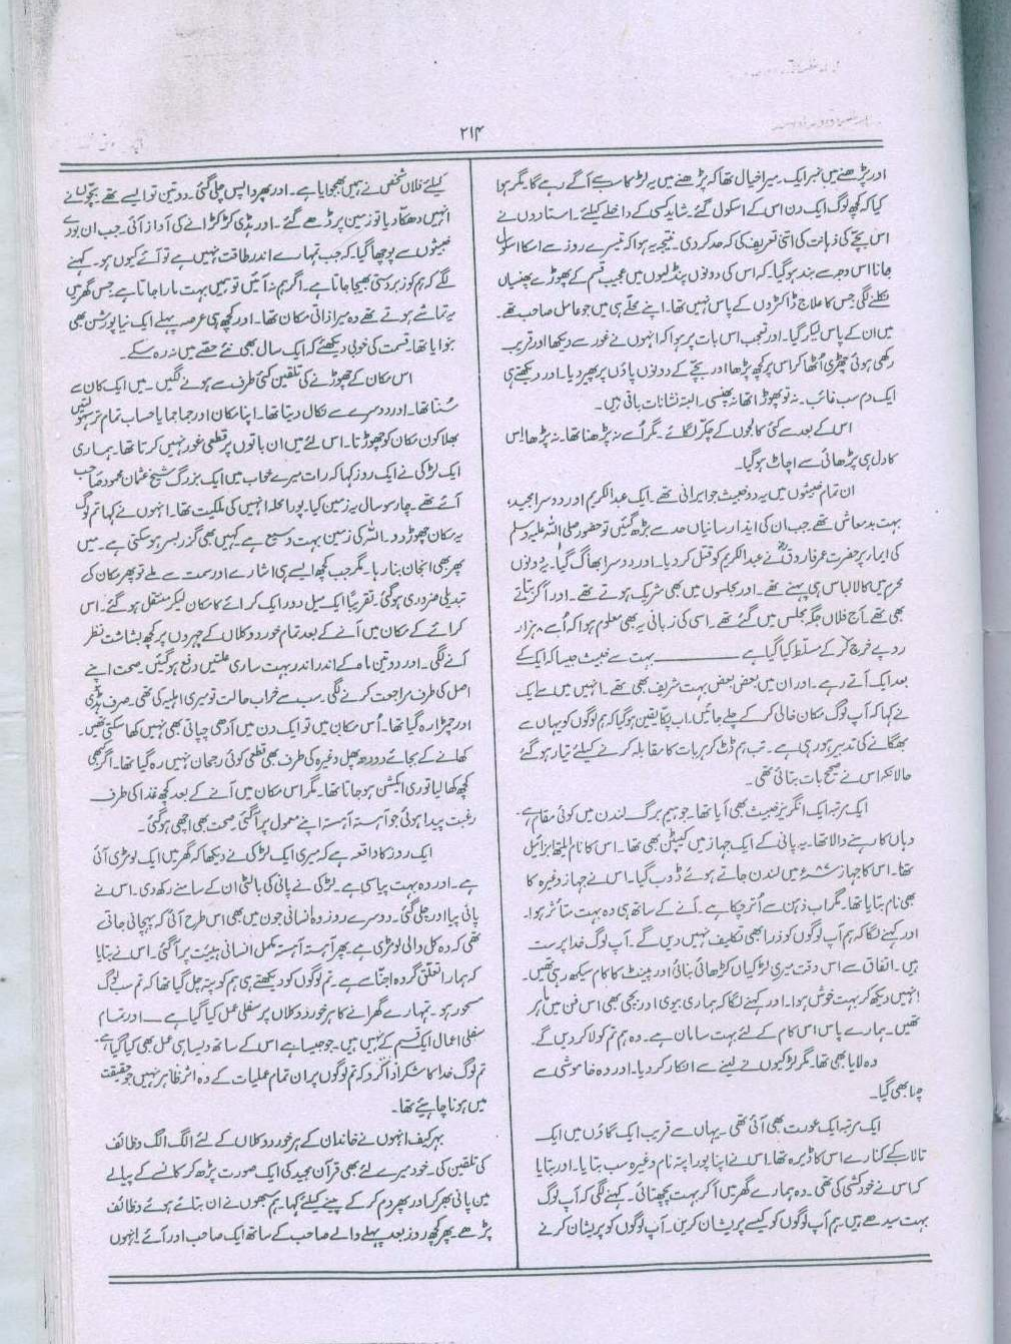 ۲۱۴
اور پڑھنے میں نمبر ایک۔ میرا خیال تھا کہ پڑھنے میں یہ لڑکا سب سے آگے رہے گا۔ مگر ہوا
کیا کہ کچھ لوگ ایک دن اس کے اسکول گئے۔ شاید کسی کے داخلے کیلئے۔ استادوں نے
اس بچے کی ذہانت کی اتنی تعریف کی کہ حد کر دی۔ نتیجہ یہ ہوا کہ تیسرے روز سے اسکا اسکول
جانا اس وجہ سے بند ہوگیا۔ کہ اس کی دونوں پنڈلیوں میں عجیب قسم کے پھوڑے پھنسیاں
نکلنے لگی جس کا علاج ڈاکٹروں کے پاس نہیں تھا۔ اپنے محلے ہی میں جو عامل صاحب تھے۔
میں ان کے پاس لیکر گیا۔ اور تعجب اس بات پر ہوا کہ انہوں نے غور سے دیکھا اور قریب
رکھی ہوئی چھڑی اُٹھا کر اس پر کچھ پڑھا اور بچے کے دونوں پاؤں پر پھیر دیا۔ اور دیکھتے ہی
ایک دم سب غائب۔ نہ تو پھوڑا تھا نہ پھنسی۔ البتہ نشانات باقی ہیں۔
اس کے بعد سے کئی کالجوں کے چکر لگائے۔ مگر اُسے نہ پڑھنا تھا۔ نہ پڑھا۔ اس
کا دل ہی پڑھائی سے اچاٹ ہوگیا۔
ان تمام خبیثوں میں یہ دو خبیث جو ایرانی تھے۔ ایک عبدالکریم اور دوسرا مجید،
بہت بدمعاش تھے جب ان کی ایذا رسانیاں حد سے بڑھ گئیں تو حضور صلی اللہ علیہ وسلم
کی ایما پر حضرت عمر فاروقؓ نے عبدالکریم کو قتل کر دیا۔ اور دوسرا بھاگ گیا۔ یہ دونوں
محرم میں کالا لباس ہی پہنے تھے۔ اور مجلسوں میں بھی شریک ہوتے تھے۔ اور آ کر بتاتے
بھی تھے۔ آج فلاں جگہ مجلس میں گئے تھے۔ اسی کی زبانی یہ بھی معلوم ہوا کہ اُسے ۸ ہزار
روپے خرچ کر کے مسلط کیا گیا ہے ـــــــــ بہت سے خبیث جیسا کہ ایک کے
بعد ایک آتے رہے۔ اور ان میں بعض بعض بہت شریف بھی تھے۔ انہیں میں سے ایک
نے کہا کہ آپ لوگ مکان خالی کر کے چلے جائیں۔ اب پکا یقین ہوگیا کہ ہم لوگوں کو یہاں سے
بھگانے کی تدبیر ہو رہی ہے۔ تب ہم ڈٹ کر ہر بات کا مقابلہ کرنے کیلئے تیار ہو گئے
حالانکہ اس نے صحیح بات بتائی تھی۔
ایک مرتبہ ایک انگریز خبیث بھی آیا تھا۔ جو ہیمبرگ لندن میں کوئی مقام ہے۔
وہاں کا رہنے والا تھا۔ یہ پانی کے ایک جہاز میں کیپٹن بھی تھا۔ اس کا نام
تھا۔ اس کا جہاز میں لندن جاتے ہوئے ڈوب گیا۔ اس نے جہاز وغیرہ کا
بھی نام بتایا تھا۔ مگر اب ذہن سے اُتر چکا ہے۔ آنے کے ساتھ ہی وہ بہت متاثر ہوا۔
اور کہنے لگا کہ ہم آپ لوگوں کو ذرا بھی تکلیف نہیں دیں گے۔ آپ لوگ خدا پرست
ہیں۔ اتفاق سے اس وقت میری لڑکیاں کڑھائی بنائی اور پینٹ کا کام سیکھ رہی تھیں۔
انہیں دیکھ کر بہت خوش ہوا۔ اور کہنے لگا کہ ہماری بیوی اور بچی بھی اس فن میں ماہر
تھیں۔ ہمارے پاس اس کام کے لئے بہت سامان ہے۔ وہ ہم تم کو لا کر دیں گے۔
وہ لایا بھی تھا۔ مگر لڑکیوں نے لینے سے انکار کر دیا۔ اور وہ خاموشی سے
چلا بھی گیا۔
ایک مرتبہ ایک عورت بھی آئی تھی۔ یہاں سے قریب ایک گاؤں میں ایک
تالاب کے کنارے اس کا ڈیرہ تھا۔ اس نے اپنا پورا پتہ نام وغیرہ سب بتایا۔ اور بتایا
کہ اس نے خودکشی کی تھی۔ وہ ہمارے گھر میں آ کر بہت پچھتائی۔ کہنے لگی کہ آپ لوگ
بہت سیدھے ہیں۔ ہم آپ لوگوں کو کیسے پریشان کریں۔ آپ لوگوں کو پریشان کرنے
کیلئے فلاں شخص نے ہمیں بھجوایا ہے۔ اور پھر واپس چلی گئی۔ دو تین تو ایسے تھے بچوں نے
انہیں دھکا دیا تو زمین پر ڈھے گئے۔ اور ہڈی کڑکڑانے کی آواز آئی۔ جب ان بوڑھے
خبیثوں سے پوچھا گیا۔ کہ جب تمہارے اندر طاقت نہیں ہے تو آئے کیوں ہو۔ کہنے
لگے کہ ہم کو زبردستی بھیجا جاتا ہے۔ اگر ہم نہ آئیں تو ہمیں بہت مارا جاتا ہے۔ جس گھر میں
یہ تماشے ہوتے تھے وہ میرا ذاتی مکان تھا۔ اور کچھ ہی عرصہ پہلے ایک نیا پورشن بھی
بنوایا تھا۔ قسمت کی خوبی دیکھئے کہ ایک سال بھی نئے حصے میں نہ رہ سکے۔
اس مکان کے چھوڑنے کی تلقین کئی طرف سے ہونے لگیں۔ میں ایک کان سے
سُنتا تھا۔ اور دوسرے سے نکال دیتا تھا۔ اپنا مکان اور جما جمایا حساب تمام تر سہولتیں
بھلا کون مکان کو چھوڑتا۔ اس لئے میں ان باتوں پر قطعی غور نہیں کرتا تھا۔ ہماری
ایک لڑکی نے ایک روز کہا کہ رات میرے خواب میں ایک بزرگ شیخ عثمان محمود صاحب
آئے تھے۔ چار سو سال یہ زمین کیا۔ پورا محلہ انہیں کی ملکیت تھا۔ انہوں نے کہا تم لوگ
یہ مکان چھوڑ دو۔ اللہ کی زمین بہت وسیع ہے۔ کہیں بھی گزر بسر ہو سکتی ہے۔ میں
پھر بھی انجان بنا رہا۔ مگر جب کچھ ایسے ہی اشارے اور سمت سے ملے تو پھر مکان کی
تبدیلی ضروری ہوگئی۔ تقریباً ایک میل دور ایک کرائے کا مکان لیکر منتقل ہو گئے۔ اس
کرائے کے مکان میں آنے کے بعد تمام خورد و کلاں کے چہروں پر کچھ بشاشت نظر
آنے لگی۔ اور دو تین ماہ کے اندر اندر بہت ساری علتیں دفع ہو گئیں۔ صحت اپنے
اصل کی طرف مراجعت کرنے لگی۔ سب سے خراب حالت تو میری اہلیہ کی تھی۔ صرف ہڈی
اور چمڑا رہ گیا تھا۔ اُس مکان میں تو ایک دن میں آدھی چپاتی بھی نہیں کھا سکتی تھیں۔
کھانے کے بجائے دودھ پھل وغیرہ کی طرف بھی قطعی کوئی رجحان نہیں رہ گیا تھا۔ اگر بھی
کچھ کھا لیا تو ری ایکشن ہو جاتا تھا۔ مگر اس مکان میں آنے کے بعد کچھ غذا کی طرف
رغبت پیدا ہوئی جو آہستہ آہستہ اپنے معمول پر آ گئی۔ صحت بھی اچھی ہوگئی۔
ایک روز کا واقعہ ہے کہ میری ایک لڑکی نے دیکھا کہ گھر میں ایک لومڑی آئی
ہے۔ اور وہ بہت پیاسی ہے۔ لڑکی نے پانی کی بالٹی ان کے سامنے رکھ دی۔ اس نے
پانی پیا اور چلی گئی۔ دوسرے روز وہ انسانی جون میں بھی اس طرح آئی کہ پہچانی جاتی
تھی کہ وہ کل والی لومڑی ہے۔ پھر آہستہ آہستہ مکمل انسانی ہیئت پر آ گئی۔ اس نے بتایا
کہ ہمارا تعلق گروہ اجنّا سے ہے۔ تم لوگوں کو دیکھتے ہی ہم کو پتہ چل گیا تھا کہ تم سب لوگ
مسحور ہو۔ تمہارے گھرانے کا ہر خورد و کلاں پر سفلی عمل کیا گیا ہے ـــ اور تمام
سفلی اعمال ایک قسم کے نہیں ہیں۔ جو جیسا ہے اس کے ساتھ ویسا ہی عمل بھی کیا گیا ہے۔
تم لوگ خدا کا شکر ادا کرو کہ تم لوگوں پر ان تمام عملیات کے وہ اثر ظاہر نہیں جو حقیقت
میں ہونا چاہئے تھا۔
بہر کیف انہوں نے خاندان کے ہر خورد و کلاں کے لئے الگ الگ وظائف
کی تلقین کی۔ خود میرے لئے بھی قرآن مجید کی ایک صورت پڑھ کر کانسے کے پیالے
میں پانی بھر کر اور پھر دم کر کے پینے کیلئے کہا۔ ہم سبھوں نے ان بتائے ہوئے وظائف
پڑھے۔ پھر کچھ روز بعد پہلے والے صاحب کے ساتھ ایک صاحب اور آئے۔ انہوں